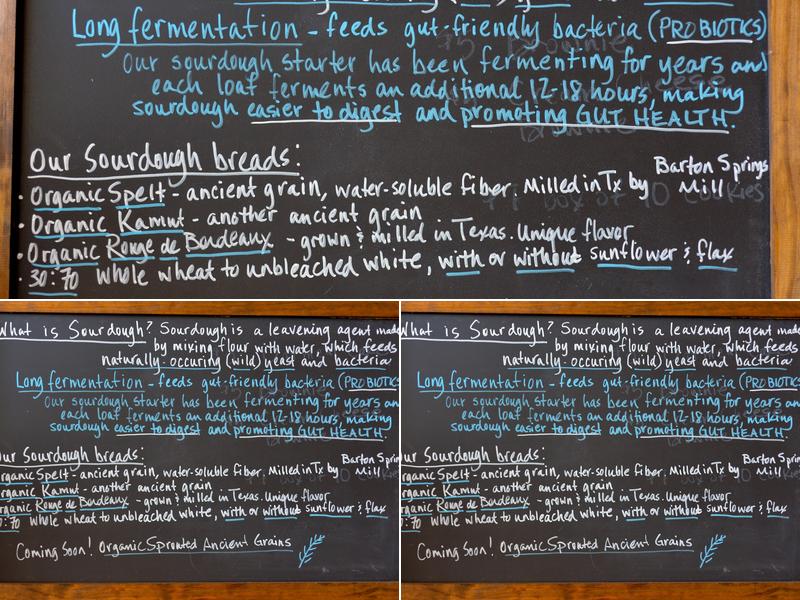 Long fermentation - feeds gut-friendly bacteria (PROBIOTICS)
Our sourdough starter has been fermenting for years and
each loaf ferments an additional 12-18 hours, making
sourdough easier to digest and promoting GUT HEALTH.
Our Sourdough breads:
· Organic Spelt - ancient grain, water-soluble fiber. Milled in Tx by Barton Springs Mill
· Organic Kamut - another ancient grain
· Organic Rouge de Bordeaux - grown & milled in Texas. Unique flavor
· 30:70 whole wheat to unbleached white, with or without sunflower & flax
What is Sourdough? Sourdough is a leavening agent made
by mixing flour with water, which feeds
naturally-occuring (wild) yeast and bacteria
Long fermentation - feeds gut-friendly bacteria (PROBIOTICS
Our sourdough starter has been fermenting for years an
each loaf ferments an additional 12-18 hours, making
sourdough easier to digest and promoting GUT HEALTH.
ur Sourdough breads:
rganic Spelt - ancient grain, water-soluble fiber. Milled in Tx by Barton Spr Mill
rganic Kamut - another ancient grain
rganic Rouge de Bordeaux - grown & milled in Texas. Unique flavor
0:70 whole wheat to unbleached white, with or without sunflower & flax
Coming Soon! Organic Sprouted Ancient Grains
What is Sourdough? Sourdough is a leavening agent made
by mixing flour with water, which feeds
naturally-occuring (wild) yeast and bacteria
Long fermentation - feeds gut-friendly bacteria (PROBIOTICS
Our sourdough starter has been fermenting for years an
each loaf ferments an additional 12-18 hours, making
sourdough easier to digest and promoting GUT HEALTH.
ur Sourdough breads:
rganic Spelt - ancient grain, water-soluble fiber. Milled in Tx by Barton Spr Mill
rganic Kamut - another ancient grain
rganic Rouge de Bordeaux - grown & milled in Texas. Unique flavor
0:70 whole wheat to unbleached white, with or without sunflower & flax
Coming Soon! Organic Sprouted Ancient Grains